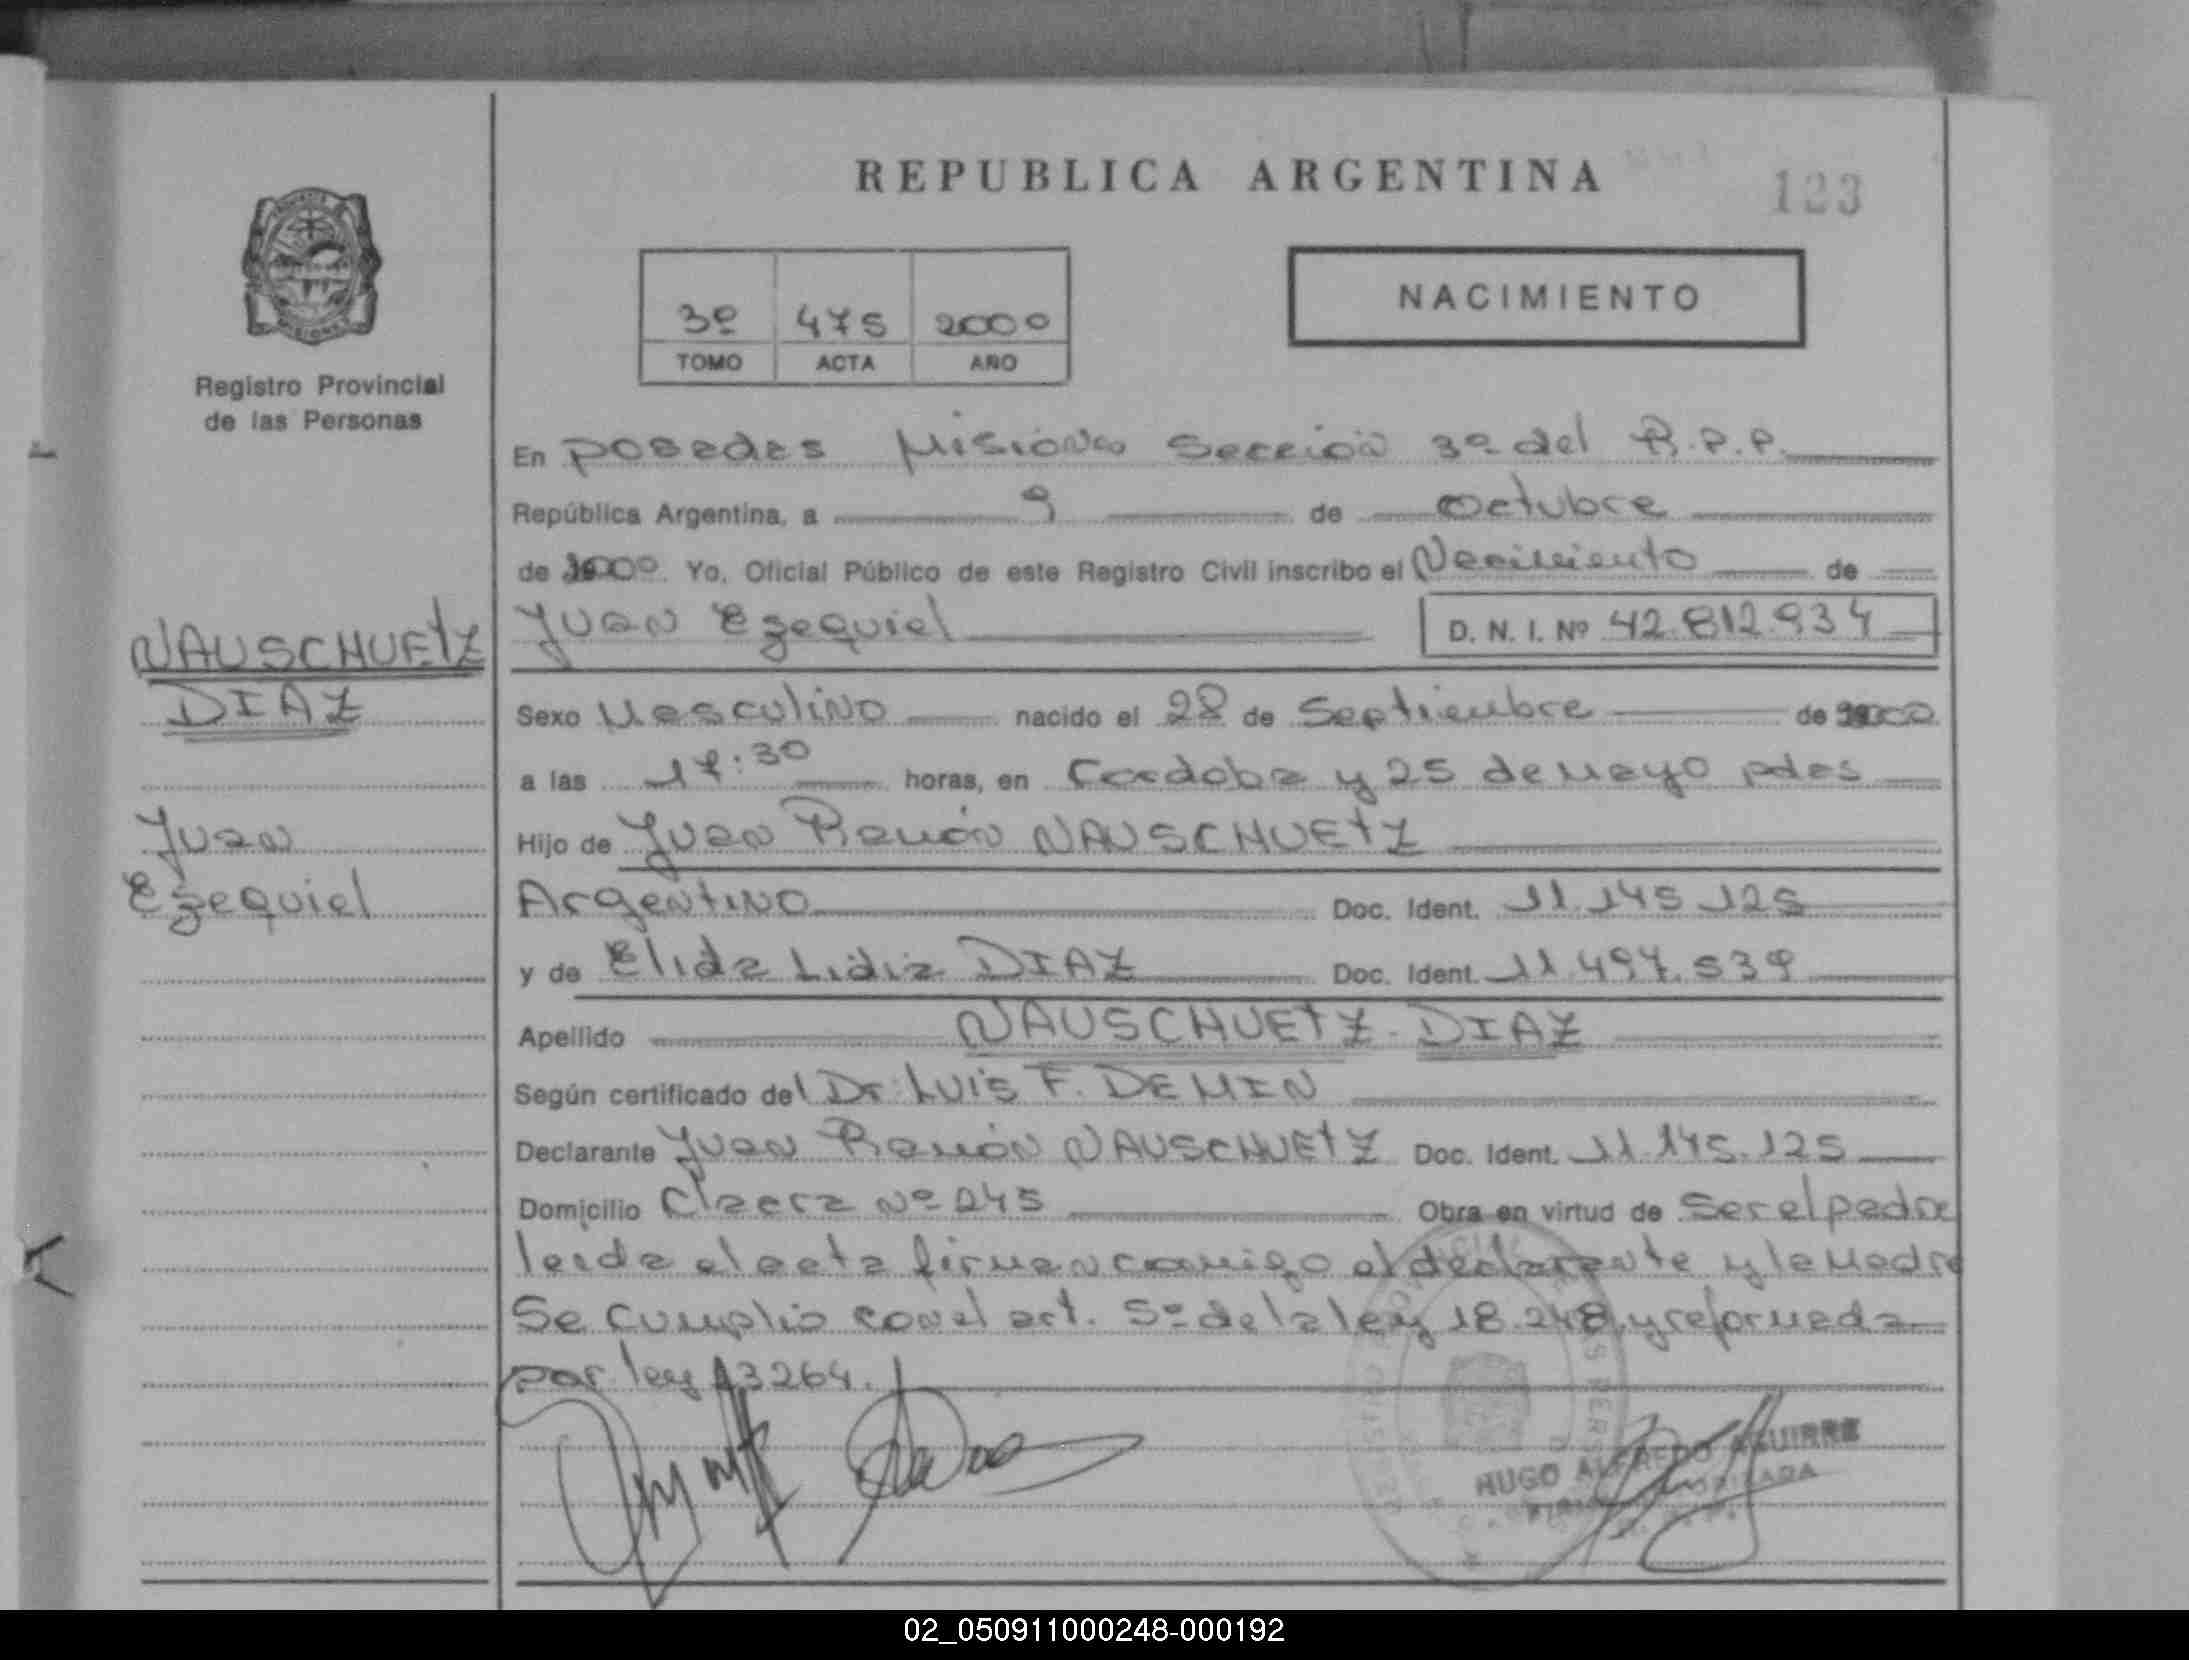 REPUBLICA ARGENTINA
123
NACIMIENTO
3º 475 2000
TOMO ACTA AÑO
Registro Provincial
de las Personas
En Posadas Misiones Sección 3º del R.P.P.
República Argentina, a 9 de Octubre
de 2000 Yo, Oficial Público de este Registro Civil inscribo el Nacimiento de
Juan Ezequiel D. N. I. Nº 42.812.934
NAUSCHUETZ
DIAZ
Juan
Ezequiel
Sexo Masculino nacido el 28 de Septiembre de 2000
a las 17:30 horas, en Cordoba y 25 de Mayo pdas
Hijo de Juan Ramón NAUSCHUETZ
Argentino Doc. Ident. 11.145.125
y de Elida Lidia DIAZ Doc. Ident. 11.497.539
Apellido NAUSCHUETZ - DIAZ
Según certificado del Dr. Luis F. DEMIN
Declarante Juan Ramón NAUSCHUETZ Doc. Ident. 11.145.125
Domicilio Nº 245 Obra en virtud de Ser el padre
leida el acta firman conmigo el declarante y la Madre
Se cumplió con el art. 5º de la ley 18.248, y reformada
por ley 23264.
HUGO ALFREDO AGUIRRE
02_050911000248-000192